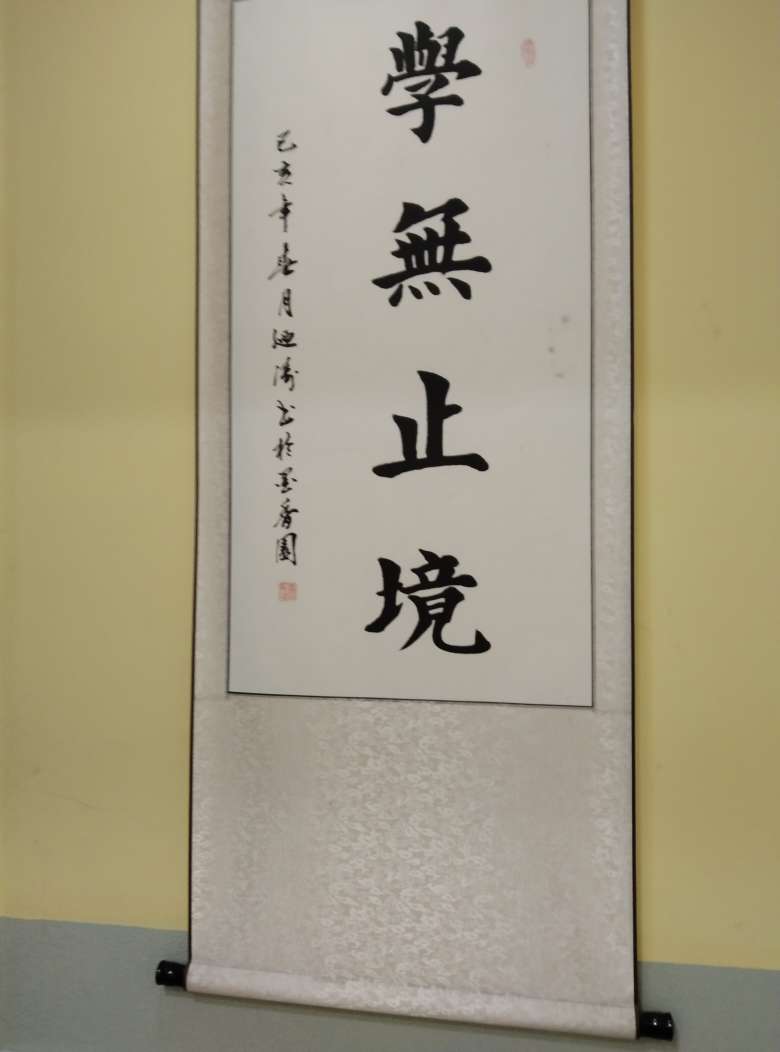 學無止境
己亥年春月迦濤書於墨香園